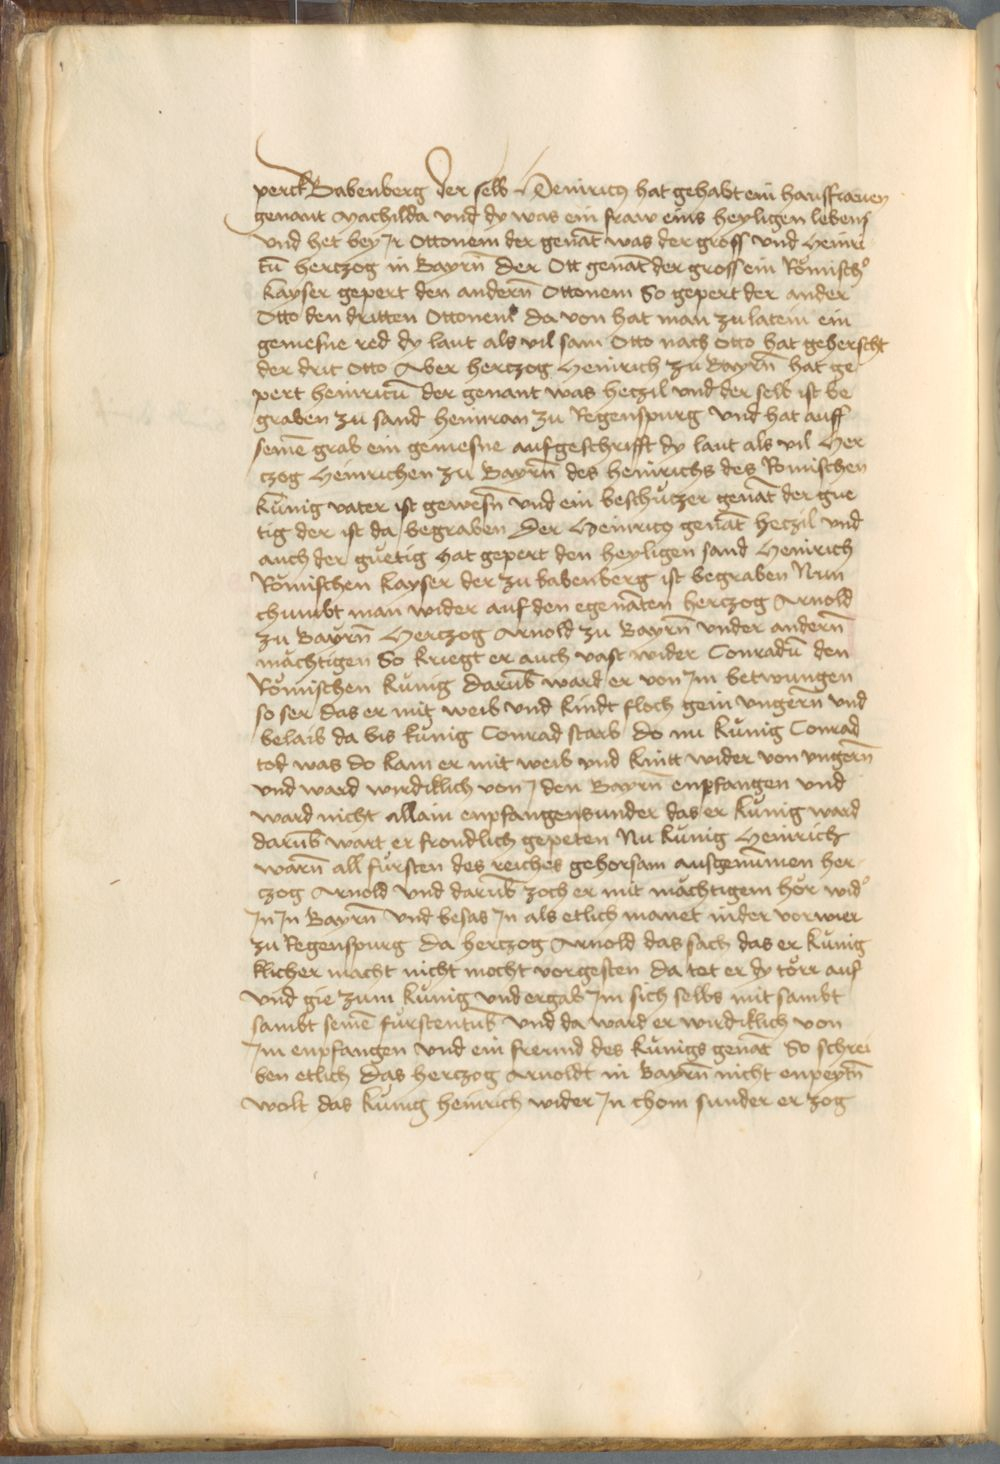 perck Babenberg der selb Heinricus hat gehabt ein hausfrauen
genant Machilda vnd dy was ein fraw eins heyligen lebens
vnd het bey Ir Ottonem der genāt was der gross vnd Heinri
cū hertzog in Bayrn̄ Der Ott genāt der gross ein Römisch᾽
Kayser gepert den andern̄ Ottonem So gepert der ander
Otto den dritten Ottonem da von hat man zu latein ein
gemesne red dy laut als vil sam Otto nach Otto hat geherscht
der drit Otto Aber hertzog Heinrich zu Bayrn̄ hat ge
pert heinricū der genant was heczil vnd der selb ist be
graben zu sand heimran zu Regenspurg vnd hat auff
seinē grab ein gemesne aufgeschrifft dy laut als vil Her
czog Heinrichen zu Bayrn̄ des heinrichs des Romischen
Künig vater ist gewesn̄ vnd ein beschüczer genāt der gue
tig der ist da begraben Der Heinricus genāt heczil vnd
auch der güetig hat gepert den heyligen sand Heinrich
Römischen Kayser der zu babenberg ist begraben Nun
chumbt man wider auf den egenāten herczog Arnold
zu Bayrn̄ Herczog Arnold zu Bayrn̄ vnder andern̄
mächtigen So kriegt er auch vast wider Conradū den
Römischen Künig darub̄ ward er von Im betwungen
so ser das er mit weib vnd kindt floch gein vngern̄ vnd
belaib da bis künig Conrad starb do nu Künig Conrad
tod was do kam er mit weib vnd kintt wider von vngern̄
vnd ward wirdiklich von den Bayrn̄ enpfangen vnd
ward nicht allain enpfangen sunder das er Künig ward
darub̄ wart er frondlich gepeten Nu Künig Heinrich
warn̄ all fürsten des reiches gehorsam ausgenumen her
czog Arnold vnd darub̄ zoch er mit mächtigem hör wid᾽
In In Bayrn̄ vnd besas In als etlich manet in der
zu Regenspurg da hertzog Arnold das sach das er Künig
klicher macht nicht mocht vorgesten da tet er dy törr auf
vnd gie zum Künig vnd ergab Im sich selbs mit sambt
sambt seinē fürstentub̄ vnd da ward er wirdiklich von
Im enpfangen vnd ein freund des Künigs genāt So schrei
ben etlich das herczog Arnoldt in Bayrn̄ nicht enpeytn̄
wolt das Künig heinrich wider In chom sunder er zog